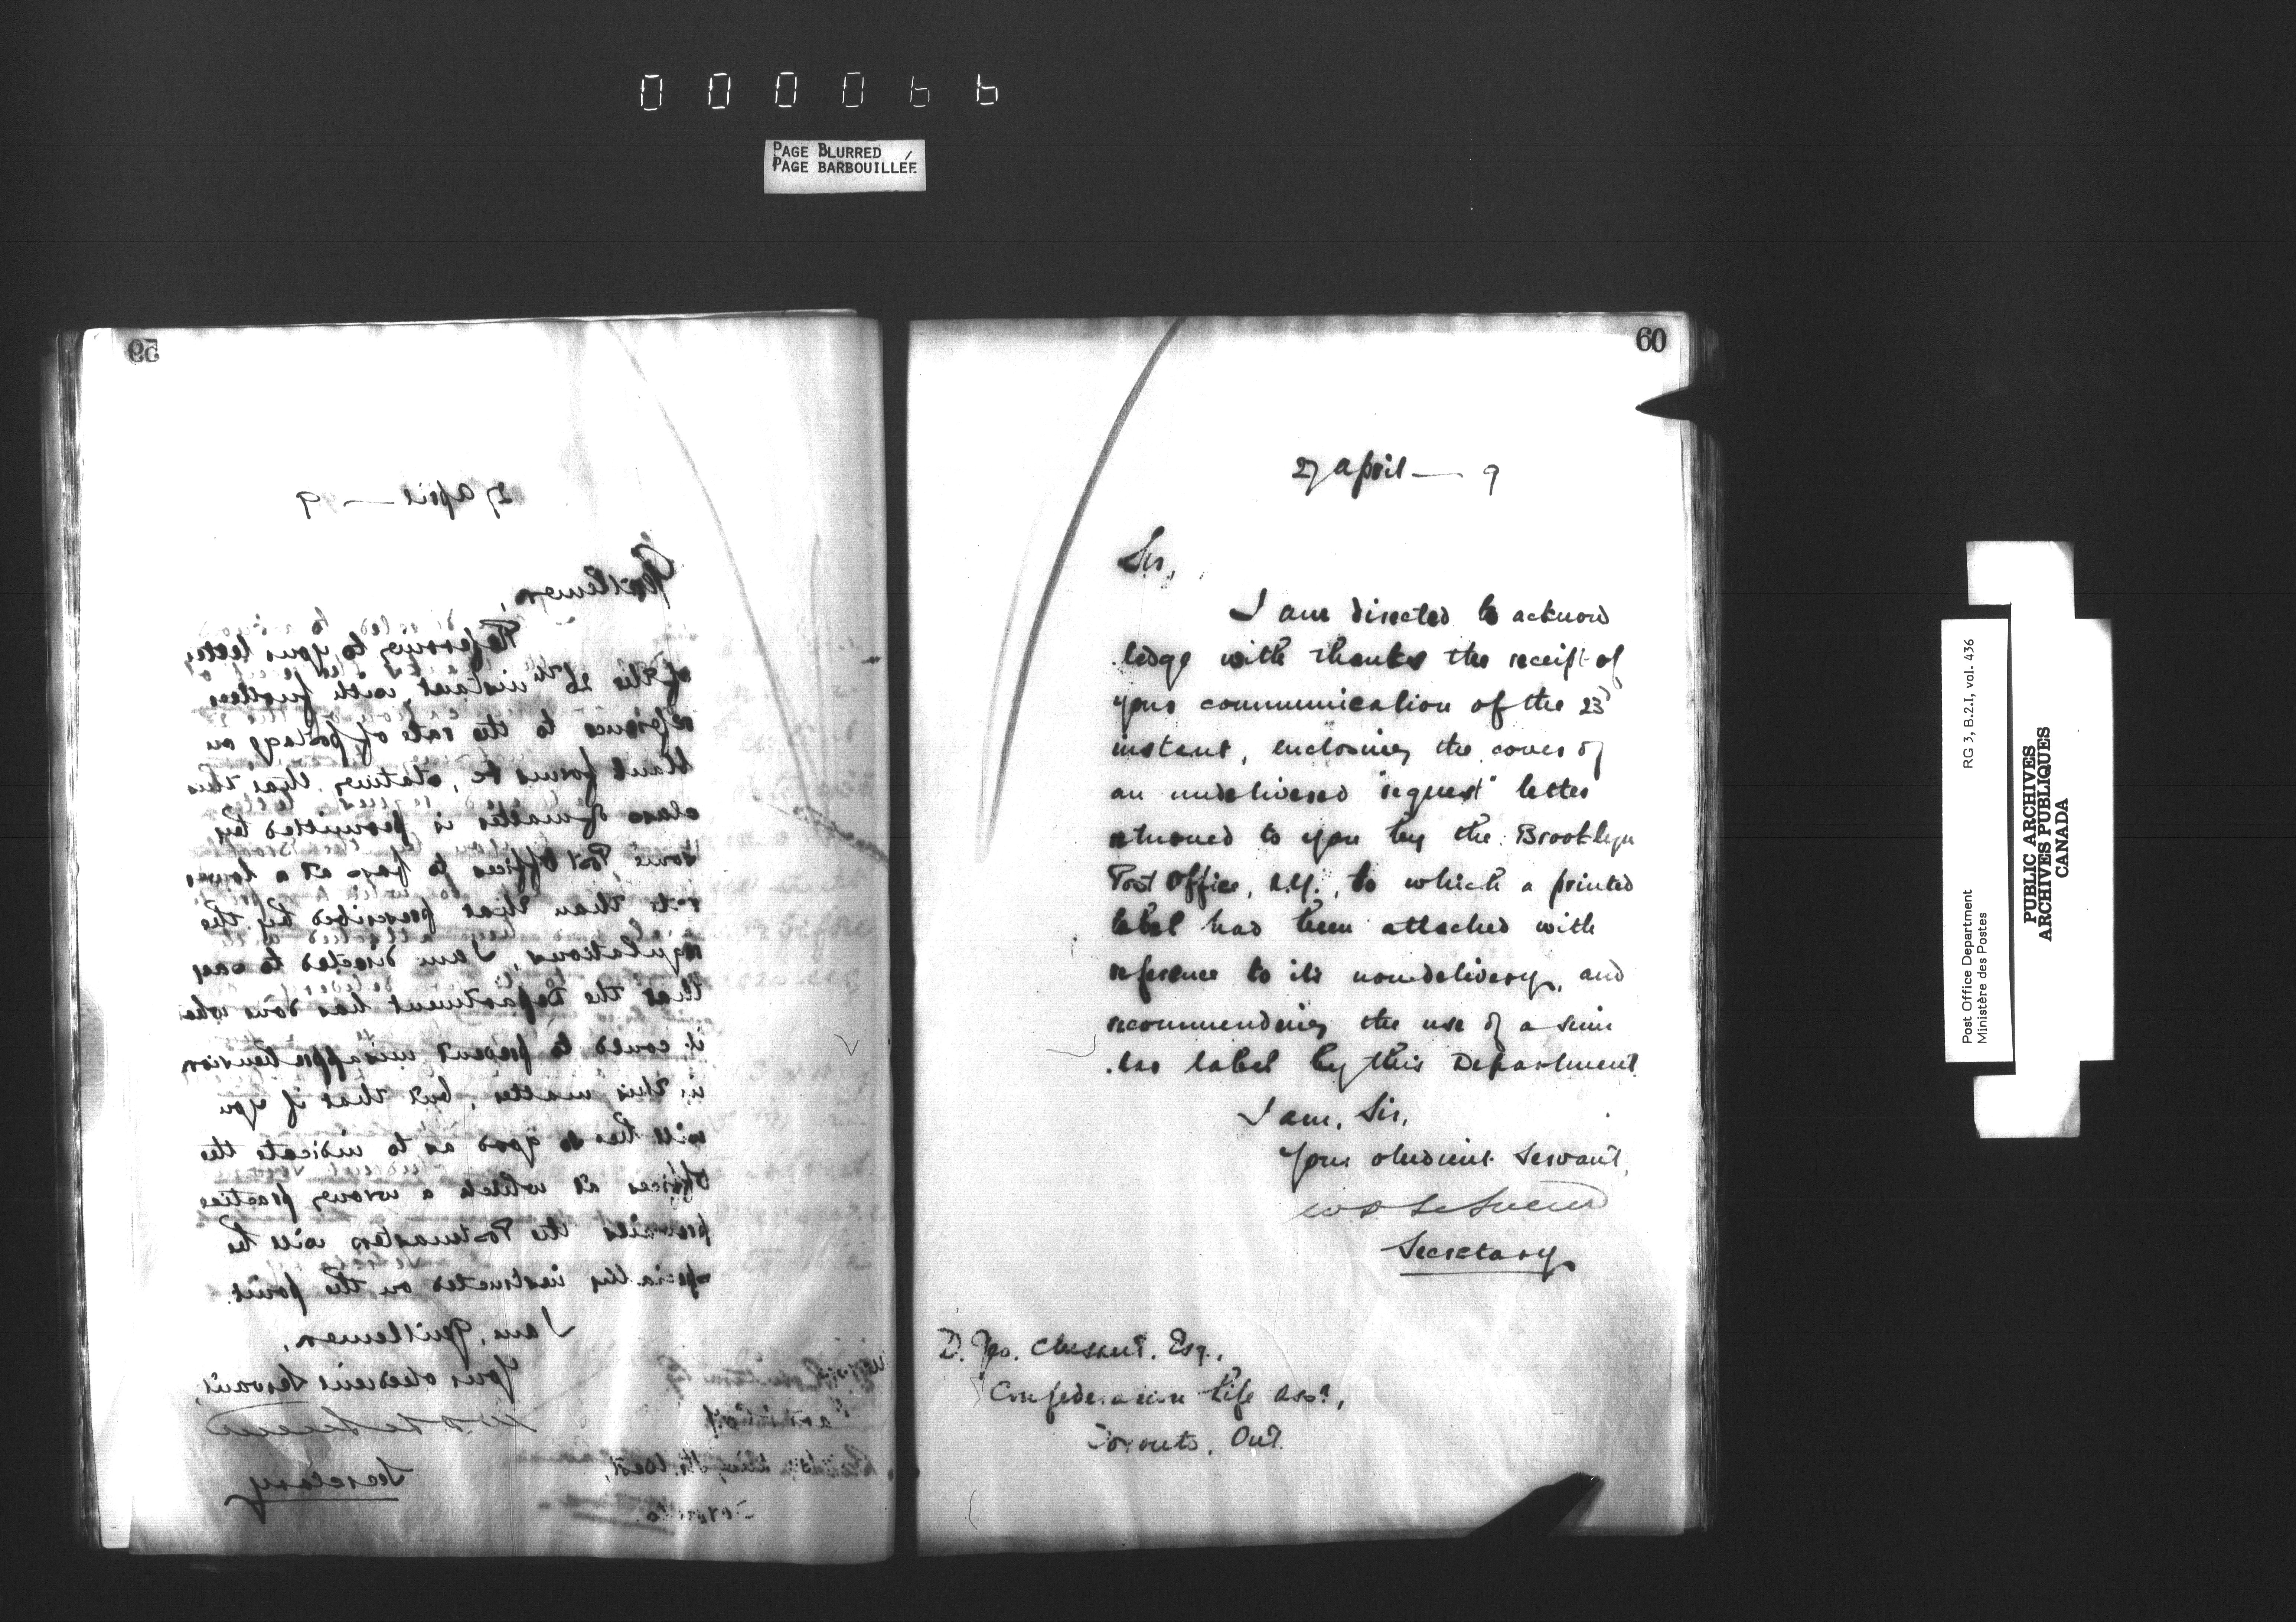 000066
PAGE BLURRED
PAGE BARBOUILLÉE
59
27 April — 9
Gentlemen,
Referring to your letter
of the 26th instant, with further
reference to the rate of postage on
blank forms &c, stating that this
class of matter is permitted by
some Post Offices to pass at a lower
rate than that prescribed by the
regulations, I am directed to say
that the Department has done what
it could to prevent misapprehension
in this matter, but that if you
will be so good as to indicate the
offices at which a wrong practice
prevails the Postmasters will be
specially instructed on the point.
I am, Gentlemen,
Your obedient Servant,
Secretary
King St. West,
Toronto
60
27 April — 9
Sir,
I am directed to acknow
ledge with thanks the receipt of
your communication of the 23d
instant, enclosing the cover of
an undelivered "request" letter
returned to you by the Brooklyn
Post Office, N.Y., to which a printed
label had been attached with
reference to its non-delivery, and
recommending the use of a simi
lar label by this Department
I am, Sir,
Your obedient Servant,
Secretary
D. Geo. Esq.,
Confederation Life Assn,
Toronto, Ont.
Post Office Department
Ministère des Postes
RG 3, B.2.1, vol. 436
PUBLIC ARCHIVES
ARCHIVES PUBLIQUES
CANADA